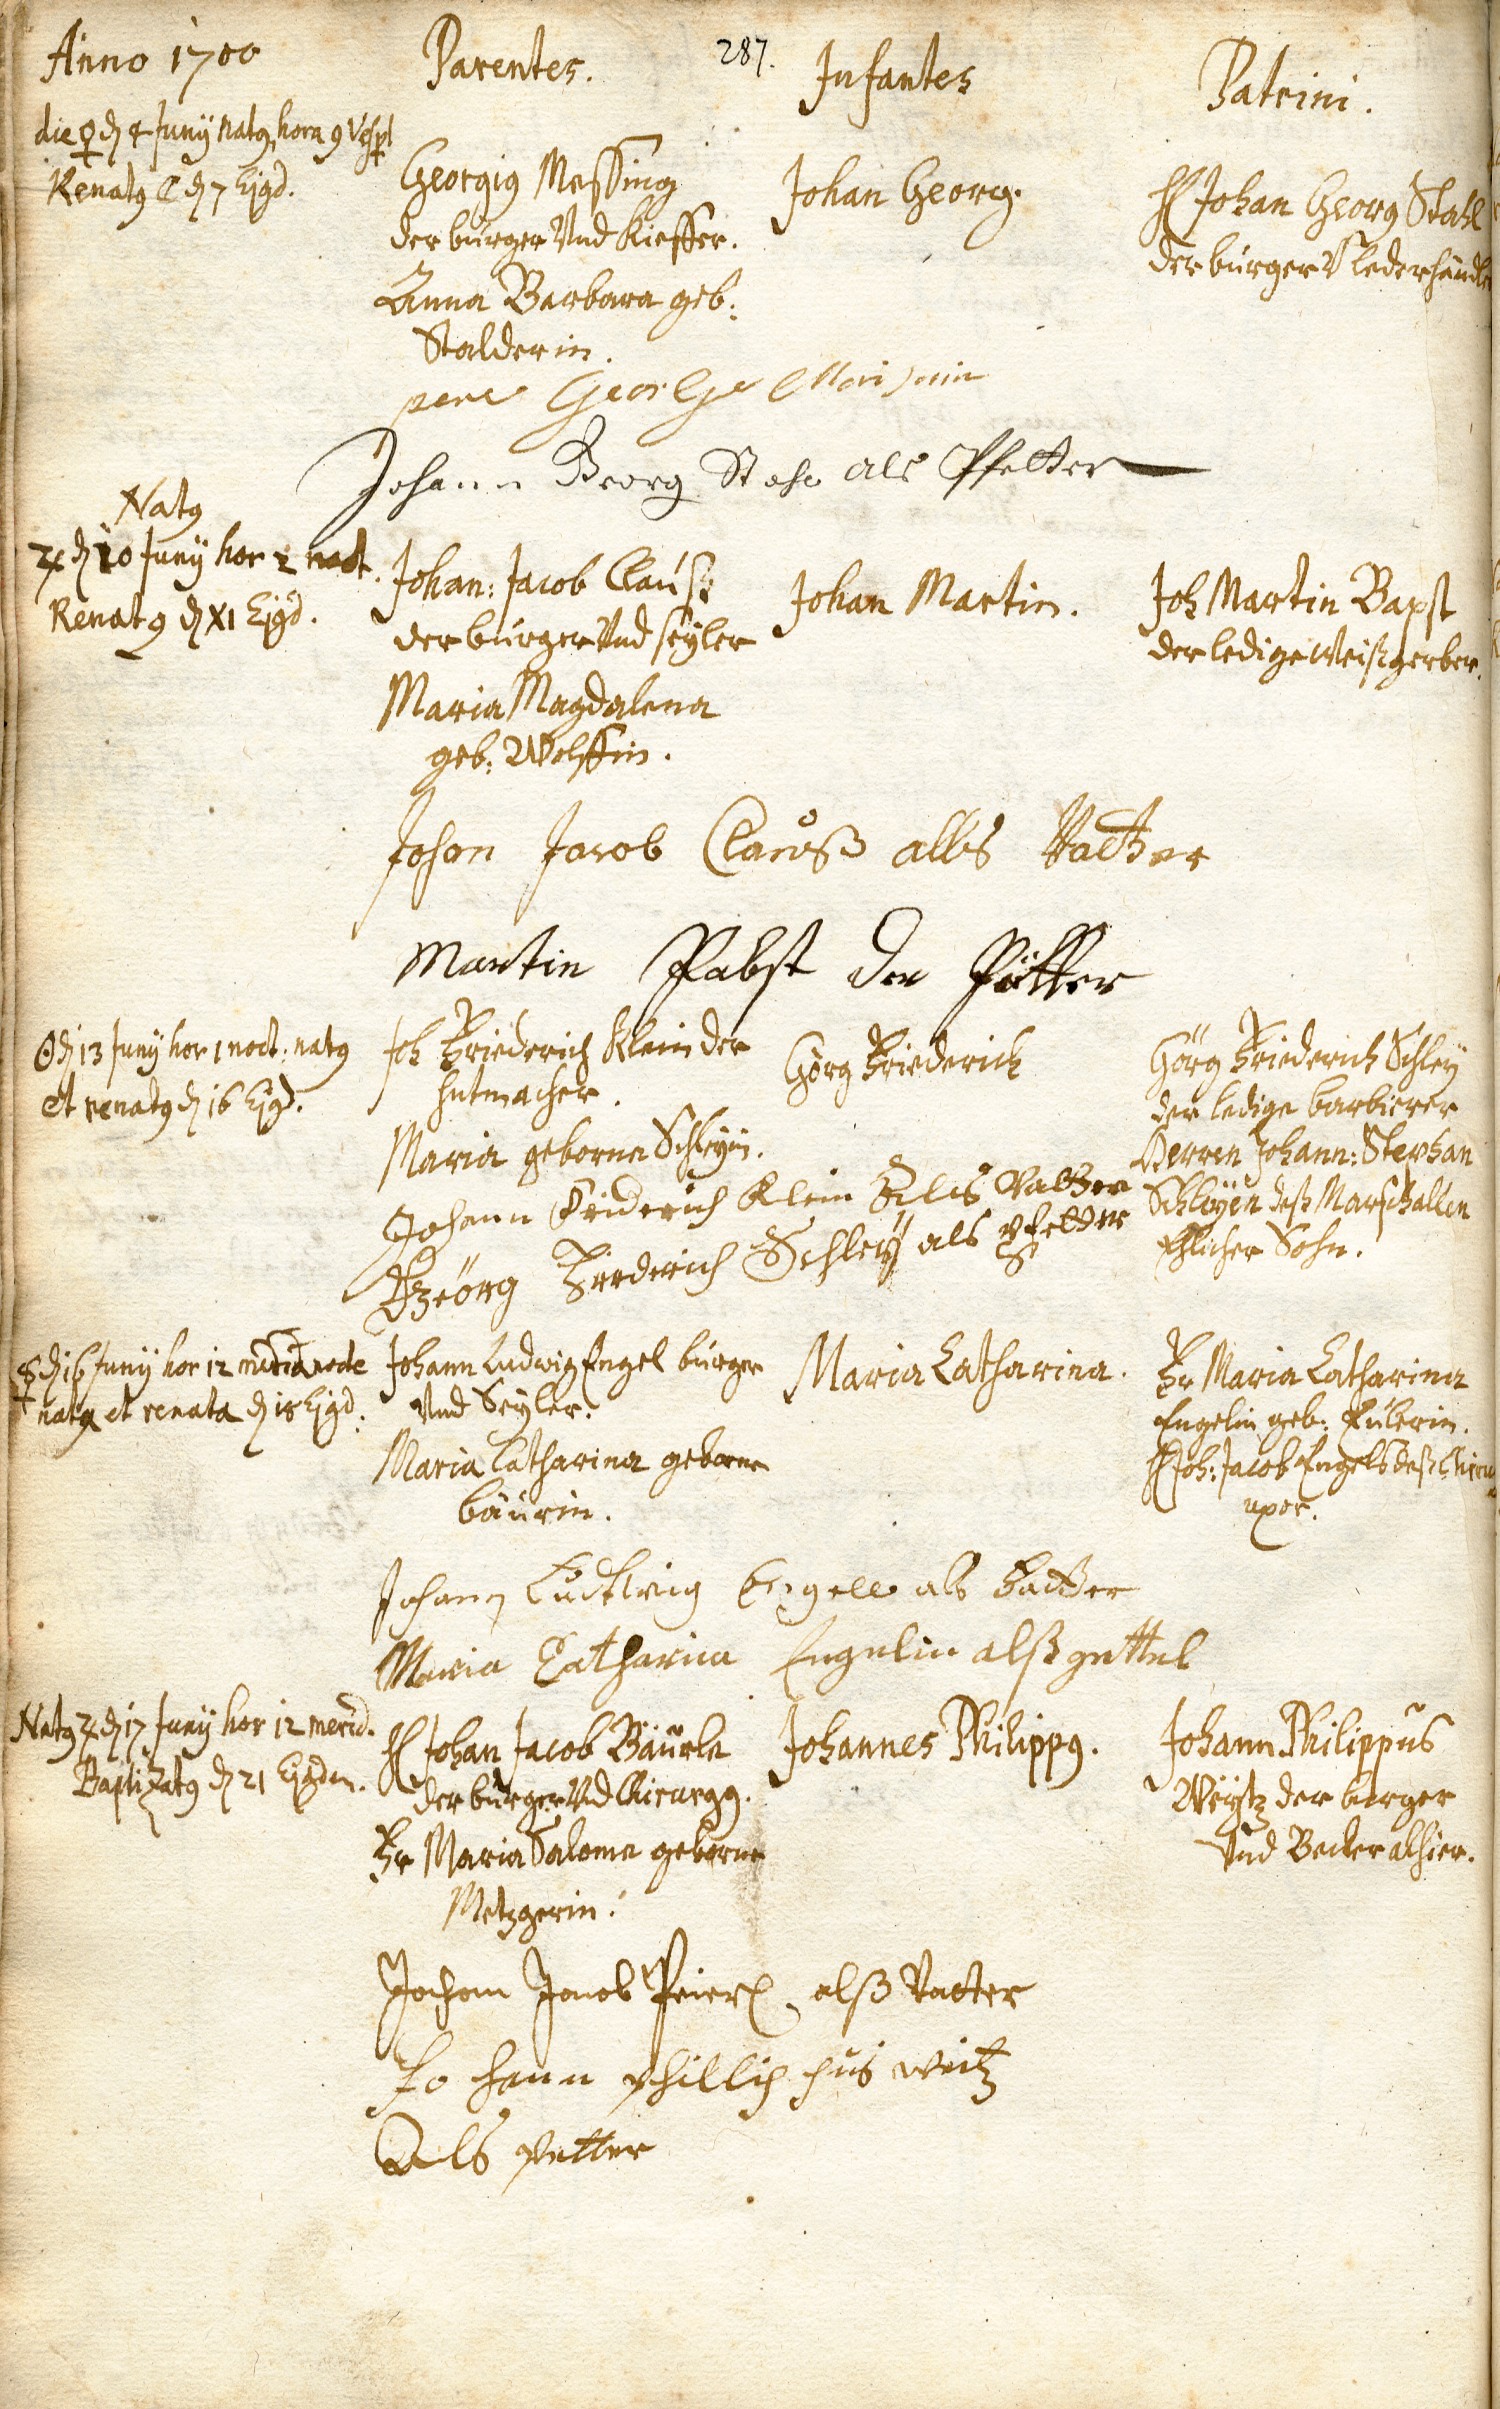 Anno 1700
Parentes.
287.
Infantes
Patrini.
die ♀ d 4 Junÿ natq hora 9 Vesp
Renatq ☾ d 7 Ejqd.
Georgiq Messing
der burger Vnd Kieffer.
Anna Barbara geb:
Stalderin.
Johan Georg.
H Johan Georg Stahl
der burger V lederhändle
pere George
Johann Georg Stahl als Pfetter
Natq
♃ d 10 Junÿ hor 2 noct.
Renatq d XI Ejqd.
Johan: Jacob Clauß
der burger Vnd seÿler
Maria Magdalena
geb: Wolffin.
Johan Martin.
Joh Martin Bapst
der ledige Weißgerber.
Johan Jacob Clauß alls Vatter
Martin Pabst der Pfetter
☉ d 13 Junÿ hor 1 noct: natq
et renatq d 16 Ejqd.
Joh Friederich Klein der
hutmacher.
Maria geborne Schleÿin.
Görg Friederich
Görg Friederich Schleÿ
der ledige barbierer
Herren Johann: Stephan
Schleÿen deß Marschallen
Ehlicher Sohn.
Johann Friderich Klein Als Vatter
Geörg Friederich Schleÿ als Pfetter
☿ d 16 Junÿ hor 12 media nocte
nata et renata d 18 Ejqd.
Johann Ludwig Engel burger
Vnd Seÿler.
Maria Catharina geborne
bäurin.
Maria Catharina.
Fr Maria Catharina
Engelin geb: Eülerin.
H Joh: Jacob Engels deß Chiru
uxor.
Johann Ludwig Engell als Vatter
Maria Catharina Engelin alß gettel
Natq ♃ d 17 Junÿ hor 12 merid.
Baptizatq d 21 Ejqdem.
H Johan Jacob Bäurle
der burger Vnd Chirurgq.
Fr Maria Salome geborne
Metzgerin.
Johannes Philippq.
Johann Philippus
Weÿtz der burger
Vnd Becker alhier.
Johann Jacob alß Vatter
Johann phillip pus weitz
Als petter